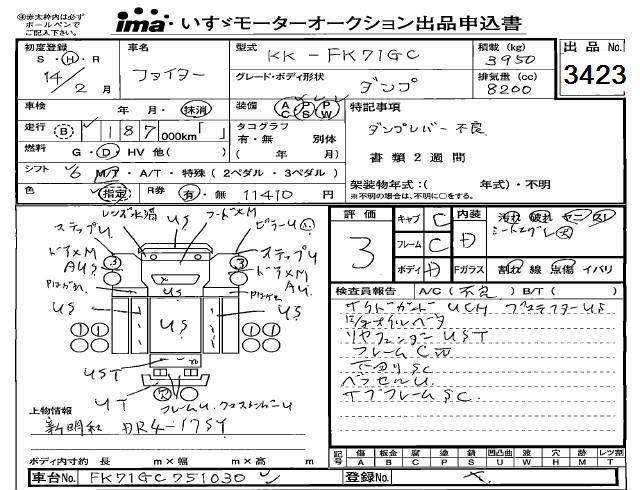 ※赤太枠内は必ずボールペンでご記入下さい。
ima いすゞモーターオークション出品申込書
初度登録 S・H・R 14/2月
車名 ファイター
型式 KK-FK71GC
積載(kg) 3950
出品No. 3423
グレード・ボディ形状 ダンプ
排気量(cc) 8200
車検 年・月・抹消
装備 AC PS PW
特記事項
走行 B 187,000km「 」
タコグラフ 有・無 別体 ( 年 月)
ダンプレバー不良
書類2週間
燃料 G・D・HV 他( )
シフト 6 M/T・A/T・特殊(2ペダル・3ペダル)
架装物年式:( 年式)・不明
※不明の場合は、不明に○をする。
色 指定 R券 有・無 11410円
レンズ水滴 フードXM
ステップU US ピラーU
ドアXM ステップU
AU ドアXM
AU
US US US US
UST
UT フレームU クロスメンバーU
評価 3
キャブ C 内装 D 汚れ 破れ ヤニ スレ
フレーム C
ボディ D Fガラス 割れ 線 点傷 イバリ
検査員報告 A/C(不良) B/T( )
サイドガード UCH
リヤフェンダー UST
フレームC
下回りSC
サブフレームSC
上物情報
新明和 DR4-17SY
ボディ内寸約 長 m×幅 m×高 m
記号 傷A 板金B 腐C 塗P 錆S 凹凸曲U 波W 穴H 跡M レツ割T
車台No. FK71GC751030
登録No.